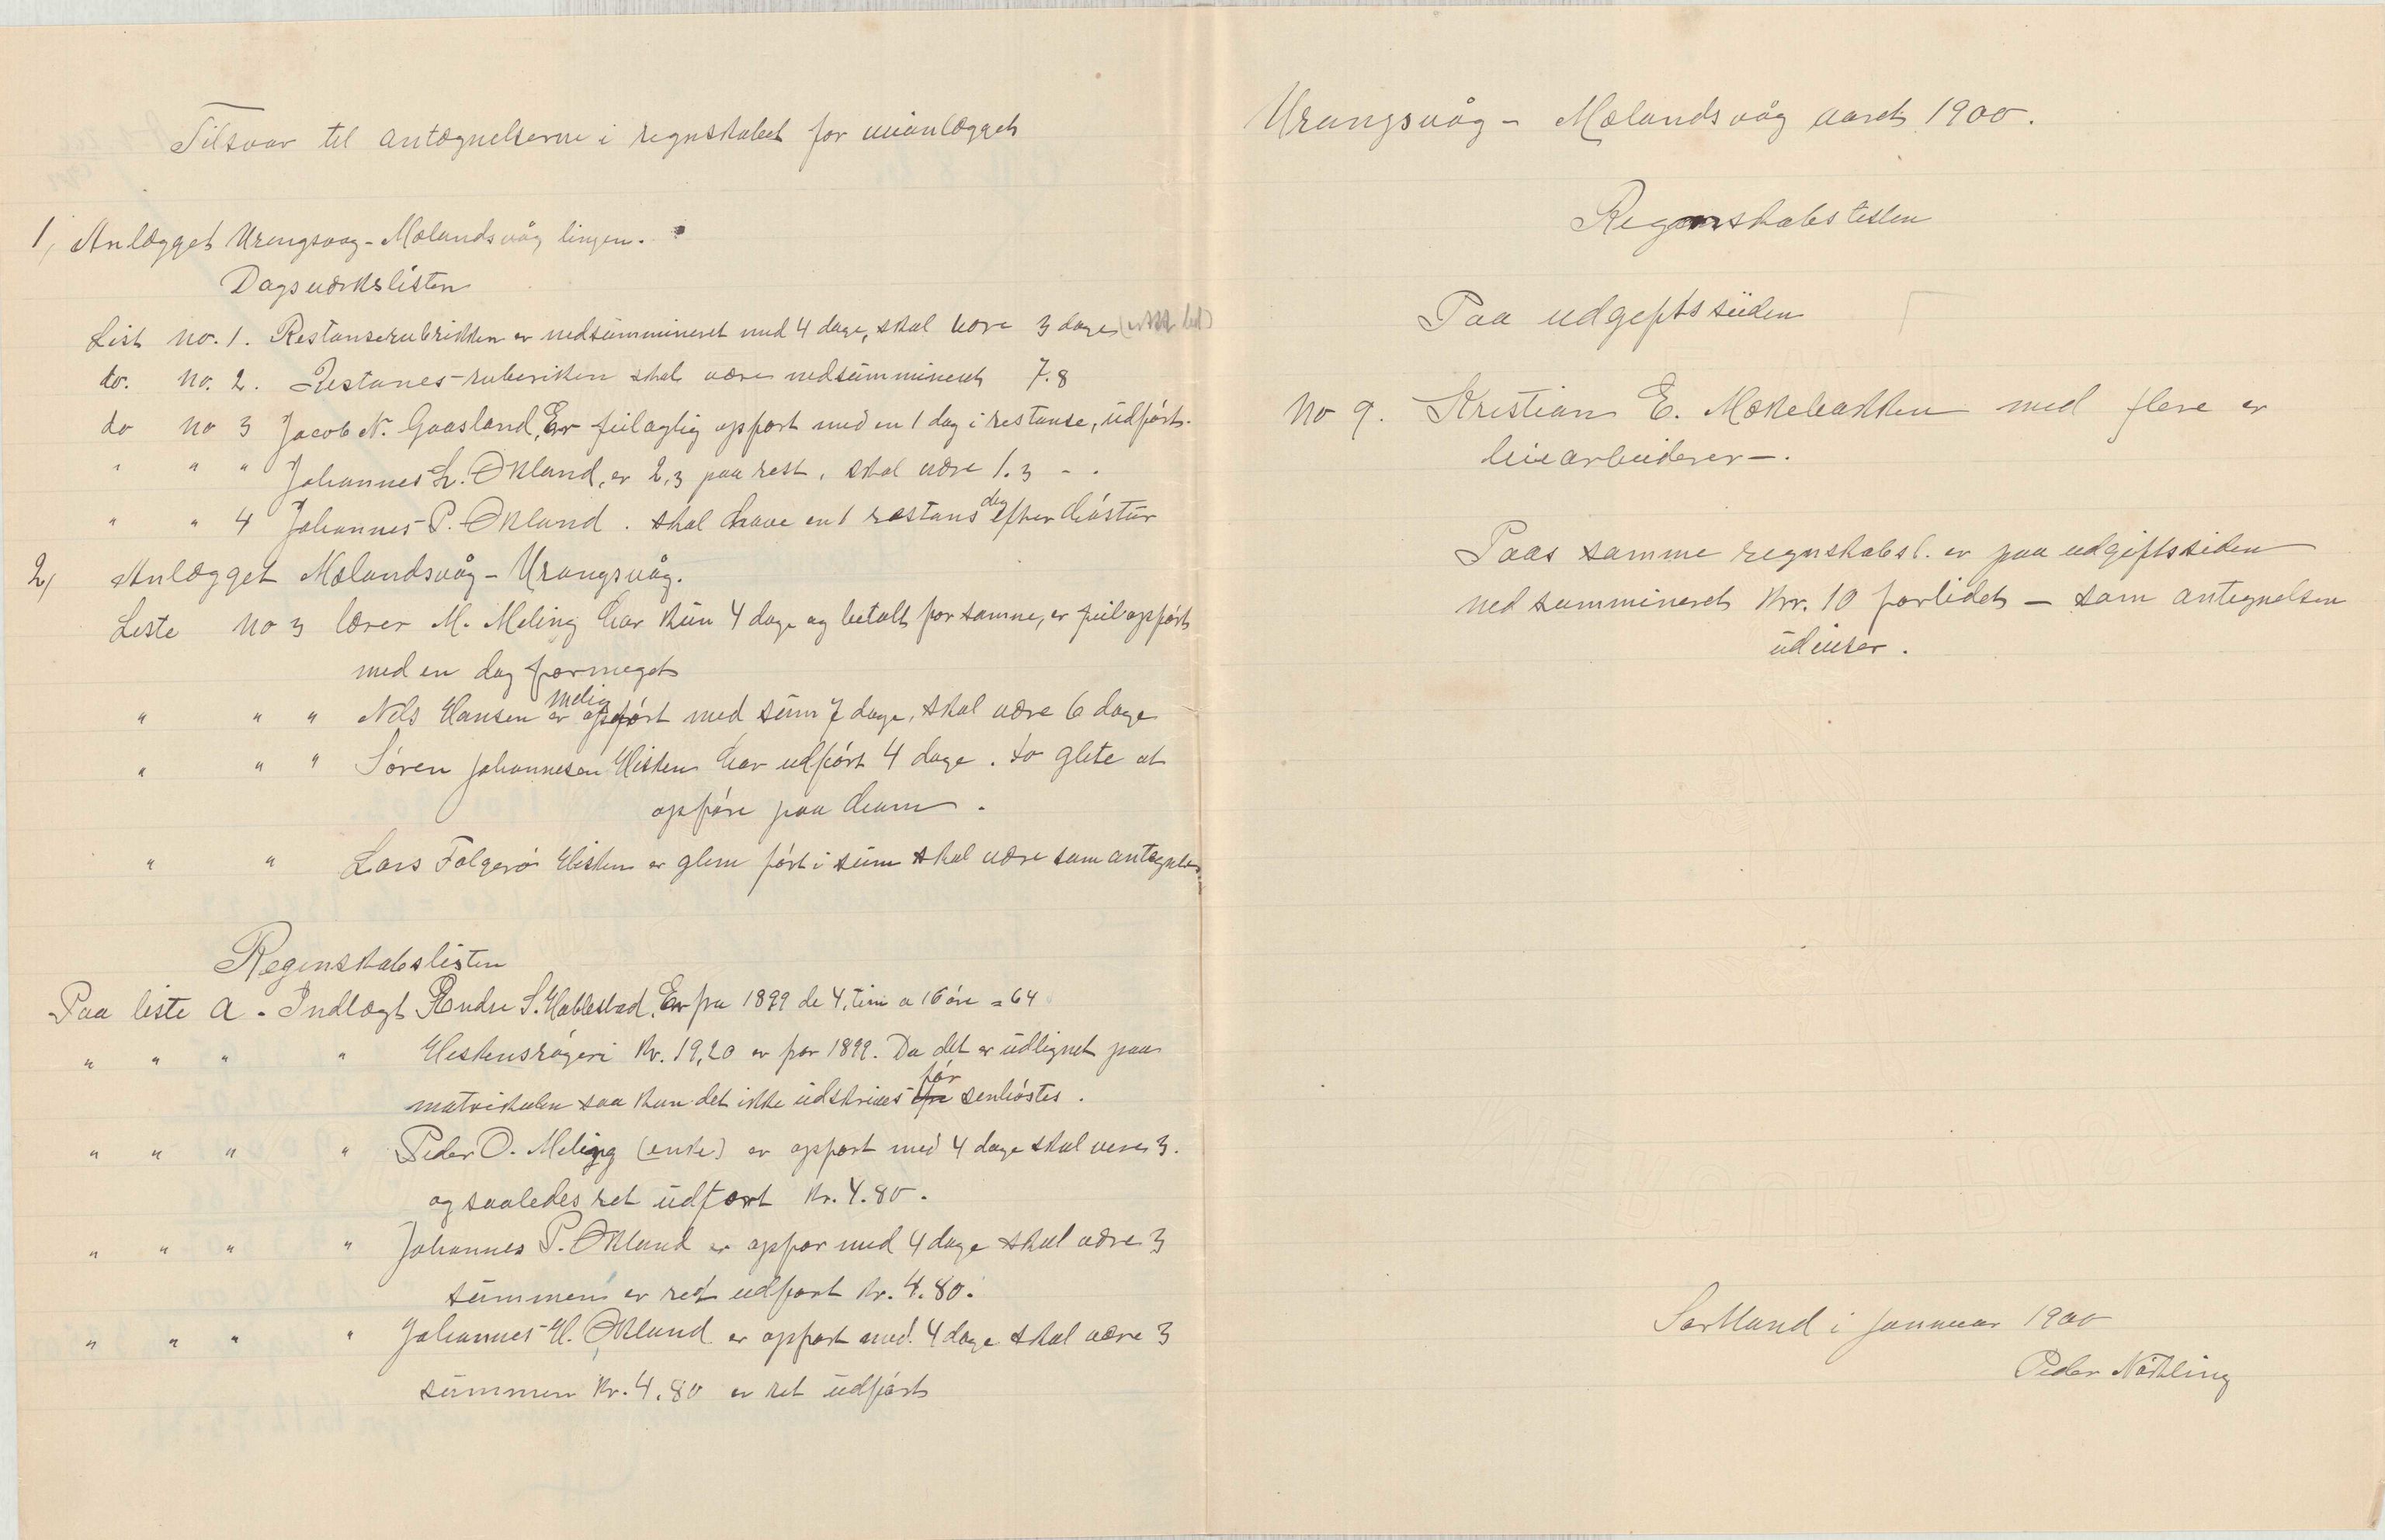 Tilsvar til antægnelserne i regnskabet for veianlægget
1, Anlægget Urangsvaag - Mælandsvåg linjen.
Dagsværkslisten
List no. 1. Restanserubrikken er nedsummineret med 4 dage, skal være 3 dage
do. no. 2. Restanes-ruberiken skal være nedsummineret 7.8
do no 3 Jacob N. Gaasland, Er feilagtig oppført med en 1 dag i restanse, udført.
" " " Johannes L. Økland, er 2,3 paa rest. skal være 1.3 - .
" " 4 Johannes P. Økland. skal have en 1 restans dag efter høstur
2, Anlægget Mælandsvåg - Urangsvåg.
Leste no 3 lærer M. Meling har kun 4 dage og betalt for samme, er feiloppført
med en dag formeget
" " " Nels Hansen Meling er oppført med sum 7 dage, skal være 6 dage
" " " Søren Johannesen Hisken har udført 4 dage. to glete at
opføre paa ham.
" " Lars Folgerø Hisken er glem ført i sum skal være som antegnelse
Regenskabslisten
Paa liste a. Indlægt Endre S. Hablestad. Er fra 1899 de 4, tim a 16 øre = 64
" " " " Heskensrøgeri Kr. 19,20 er for 1899. Da det er udlignet paa
matrikulen saa kan det ikke udskrives før senhøstes.
" " " " Peder O. Meling (enke) er oppført med 4 dage skal vere 3.
og saaledes ret udført Kr. 4.80.
" " " " Johannes P. Økland er oppfør med 4 dage skal være 3
summen er ret udført Kr. 4.80.
" " " " Johannes H. Økland er oppført med 4 dage skal være 3
summen Kr. 4.80 er ret udført
Urangsvåg - Mælandsvåg aaret 1900.
Regnskabslesten
Paa udgeftssiiden
No 9. Kristian E. Mækebakken med flere er
leiearbeiderer-.
Paas samme regnskabsl. er paa udgiftssiden
nedsummineret Kr. 10 forlidet - som antegnelsen
udviser.
Sortland i januar 1900
Peder